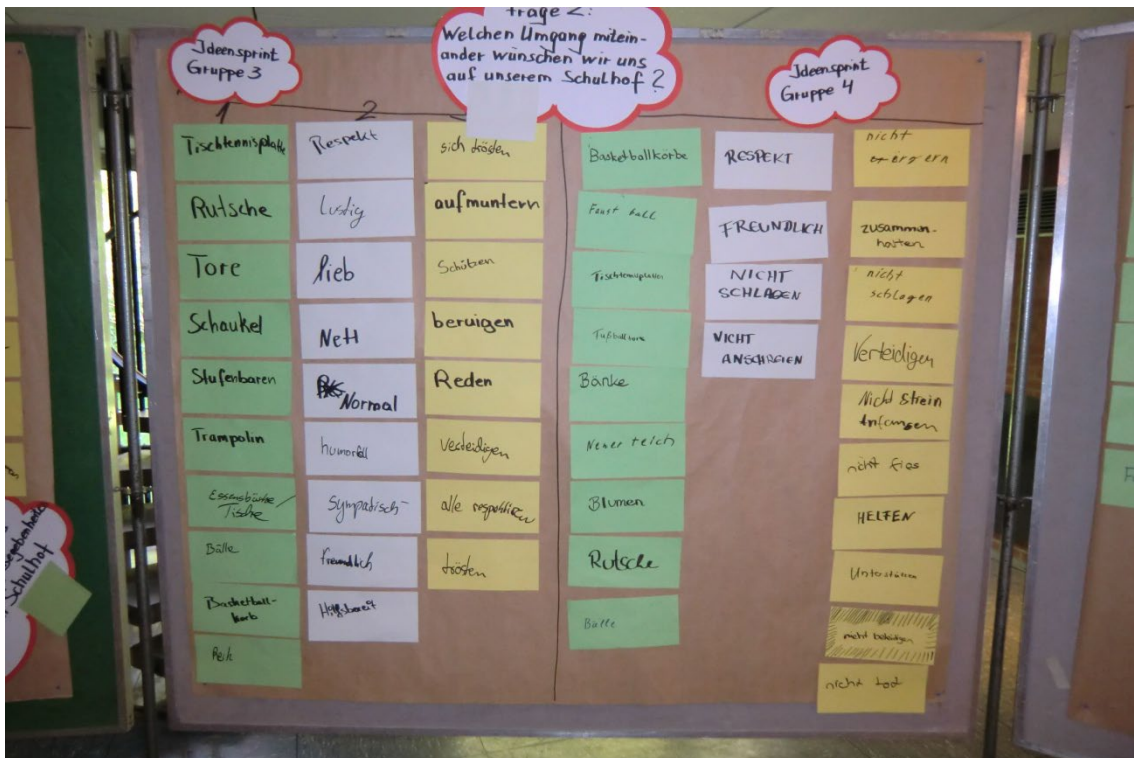 Ideensprint
Gruppe 3
Frage 2:
Welchen Umgang mitein-
ander wünschen wir uns
auf unserem Schulhof?
Ideensprint
Gruppe 4
1
2
Tischtennisplatte
Rutsche
Tore
Schaukel
Stufenbaren
Trampolin
Essensbänke/
Tische
Bälle
Basketball-
korb
Respekt
Lustig
lieb
Nett
Normal
humorfoll
Sympatisch
freundlich
Hilfsbereit
sich trösten
aufmuntern
Schützen
beruigen
Reden
verteidigen
alle respektiren
trösten
Basketballkörbe
Faust ball
Tischtennisplatten
Fußballtore
Bänke
Neuer teich
Blumen
Rutsche
Bälle
RESPEKT
FREUNDLICH
NICHT
SCHLAGEN
NICHT
ANSCHREIEN
nicht
ergern
zusammen-
halten
nicht
schlagen
Verteidigen
Nicht Strein
Anfangen
nicht fies
HELFEN
nicht
nicht tod
Schulhof